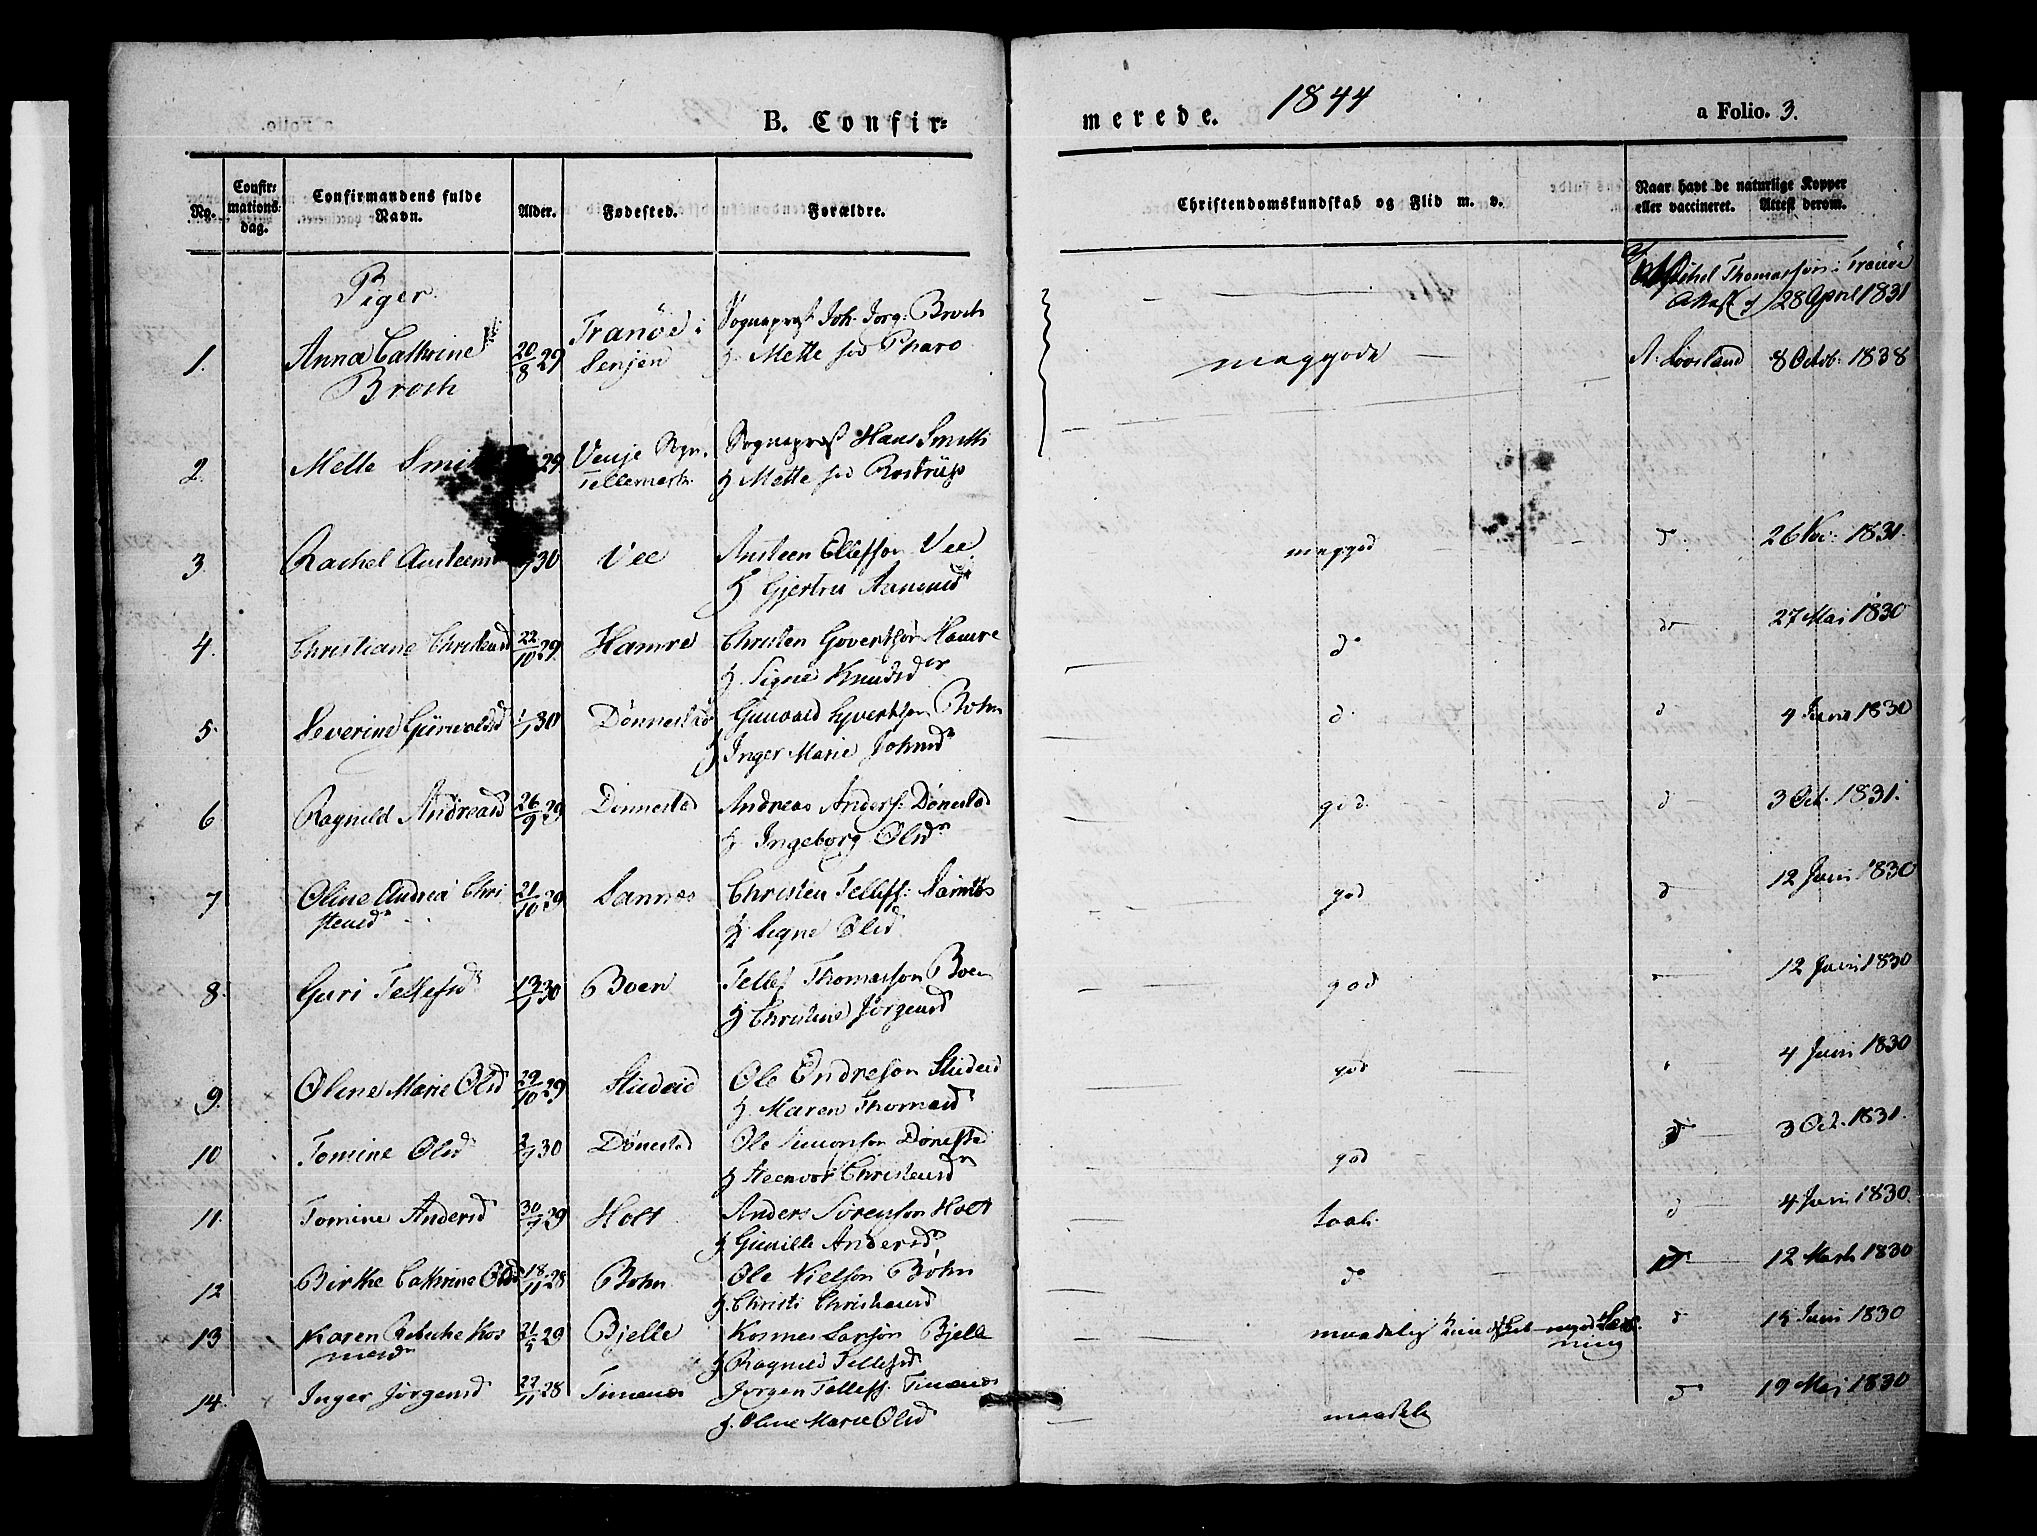 B. Confir=
merede. 1844
a Folio. 3.
No.
Confir=
mations
dag.
Confirmandens fulde
Navn.
Alder.
Fødested.
Forældre.
Christendomskundskab og Flid m. v.
Naar havt de naturlige Kopper
eller vaccineret. Attest derom.
Piger.
Thomassøn i Tranöe
Attest 28 April 1831
1. Anna Cathrine
Broch
20/8 29
Tranöe i
Senjen
Sognepræst Joh. Jørg: Broch
& Mette fød Pharo
meggode
8 Octob. 1838
2. Mette Smi
29
Sogn
Tellemark
Sognepræst Hans Smith
& Mette fød Rostrup
3. Rachel Austeens
30
Vee
Austeen Ellefsson Vee
& Gjertru
meggod
d
26 1831.
4. Christiane Christensd
22/10 29
Hamre
Christen Govertsøn Hamre
& Signe Knudsdr
do
do
27 Mai 1830
5. Severine Gunvaldsd
30
Dønnestad
Gunvald Bohn
& Inger Marie Johnsd
d.
d
4 Juni 1830
6 Ragnild Andreasd
26/9 29
Dønnestad
Andreas Anders: Dønestad
& Ingeborg Olsdr
god.
d
3 Oct. 1831.
7 Oline Andrea Chri
stensd
21/10 29
Sannes
Christen Tellefs:
& Signe Olsd
god
d
12 Juni 1830
8. Guri Tellefsd
13/ 30
Boen
Tellef Thomasson Boen
& Christine Jørgensd
god
12 Juni 1830
9. Oline Marie Olsd
29/10 29
Studed
Ole Endreson Studed
& Maren Thomasd
god
4 Juni 1830
10 Tomine Olsd
30
Dønestad
Ole Simonson Dønestad
& Steenvor Christensd
god
d
3 Oct. 1831.
11. Tomine Andersd
30/ 29
Holt
Anders Sørenson Holt
& Gunille Andersd
taal.
d
4 Juni 1830
12 Birthe Cathrine Olsd
18/11 28
Bohn
Ole Nielson Bohn
& Christi
do
12 Marts 1830
13 Karen Rebecke Kos
mesd
21/5 29
Bjelle
Kosmes Larsøn Bjelle
& Ragnild Tellefsd
maadelig Kundskab
d
15 Juni 1830
14. Inger Jørgensd
22/11 28
Timenes
Jørgen Tellefs: Timenes
& Oline Marie Olsd
maadel
d
19 Mai 1830